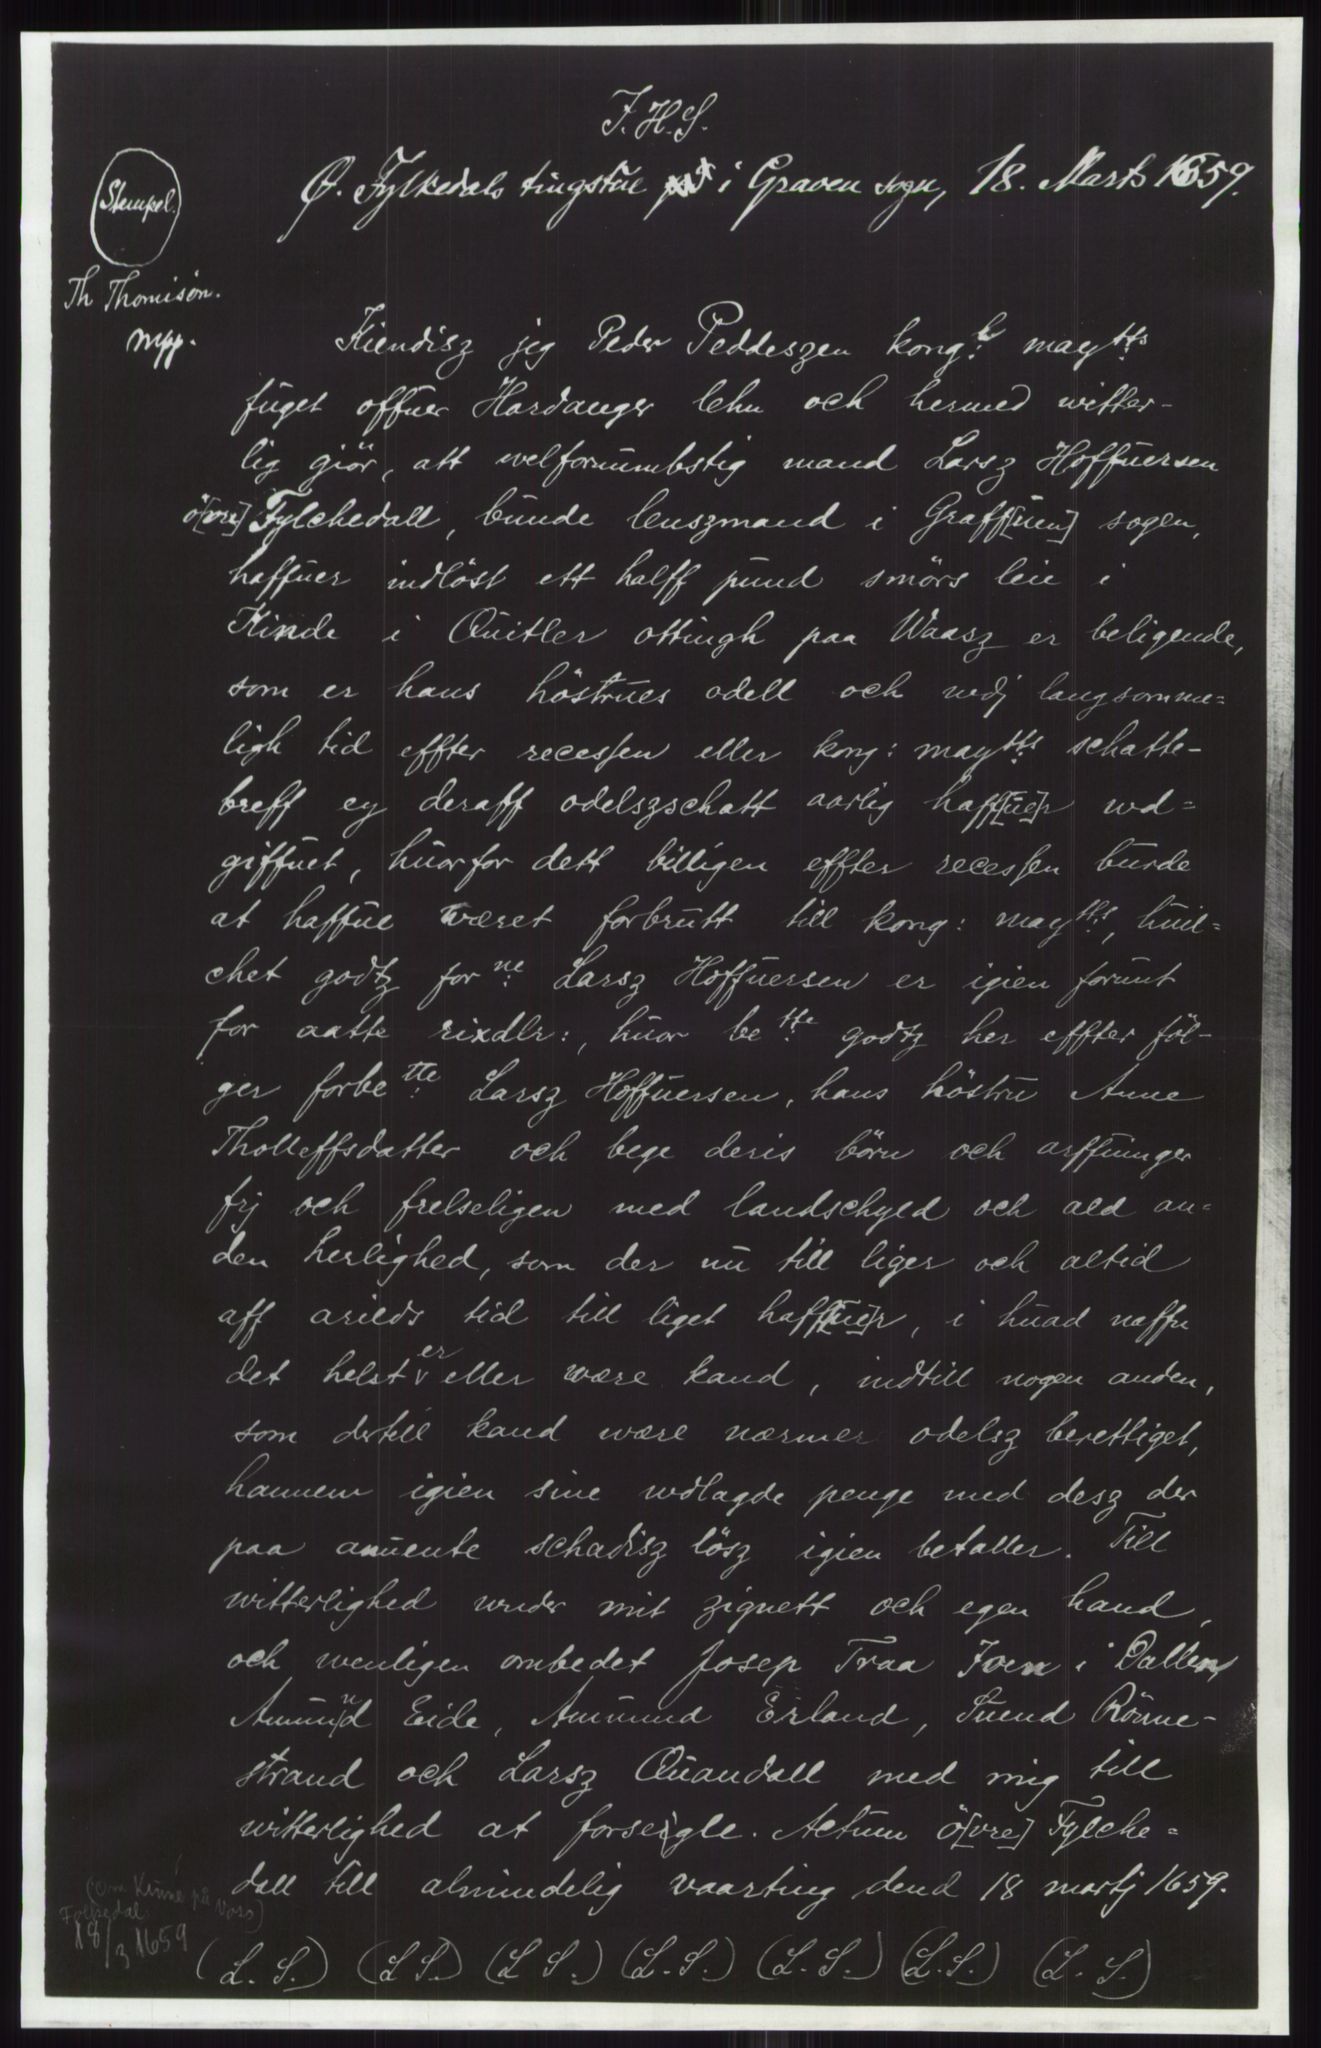 I.H.S.
Ø. Fylkedals tingstue i Graven sogn, 18. Marts 1659.
(Stempel.)
Th Thomisøn.
mpp.
Kiendisz jeg Peder Peddeszen kong: may tts
fuget offuer Hardanger lehn och hermed witter-
lig giör, att welfornumbstig mand Larsz Hoffuersen
ö[vre] Fylchedall, bunde lenszmand i Graff[uen] sogen,
haffuer indlöst ett halff pund smörs leie i
Kinde i Quitler ottingh paa Waasz er beligende,
som er hans höstrues odell och udj langsomme-
ligh tid effter recessen eller kong: may tts schatte-
breff ey deraff odelszschatt aarlig haff[ue]r ud-
giffuet, huorfor dett billigen effter recessen burde
at haffue wæret forbrutt till kong: may tts, huil-
chet godtz for ne Larsz Hoffuersen er igien forunt
for aatte rixdlr:, huor be tte godtz her effter föl-
ger forbe tte Larsz Hoffuersen, hans höstru Anne
Tholleffsdatter och bege deris börn och arffuinger
frj och frelseligen med landschyld och ald an-
den herlighed, som der nu till liger och altid
aff arilds tid till liget haff[ue]r, i huad naffn
det helst er eller være kand, indtill nogen anden,
som dertill kand være nærmer odelsz berettiget,
hannem igien sine udlagde penge med desz der
paa anuente schadisz lösz igien betaller. Till
witterlighed under mit zignett och egen hand,
och wenligen ombedet Josep Traa Iven i Dallen
Amund Eide, Amund Erland, Suend Rönne-
strand och Larsz Quandall med mig till
witterlighed at forseigle. Actum ö[vre] Fylche-
dall till almindelig vaarting dend 18 martj 1659.
(om Kinne på Voss)
Folkedal
18/3 1659
(L. S.) (L S.) (L S.) (L. S.) (L. S.) (L. S.) (L. S.)